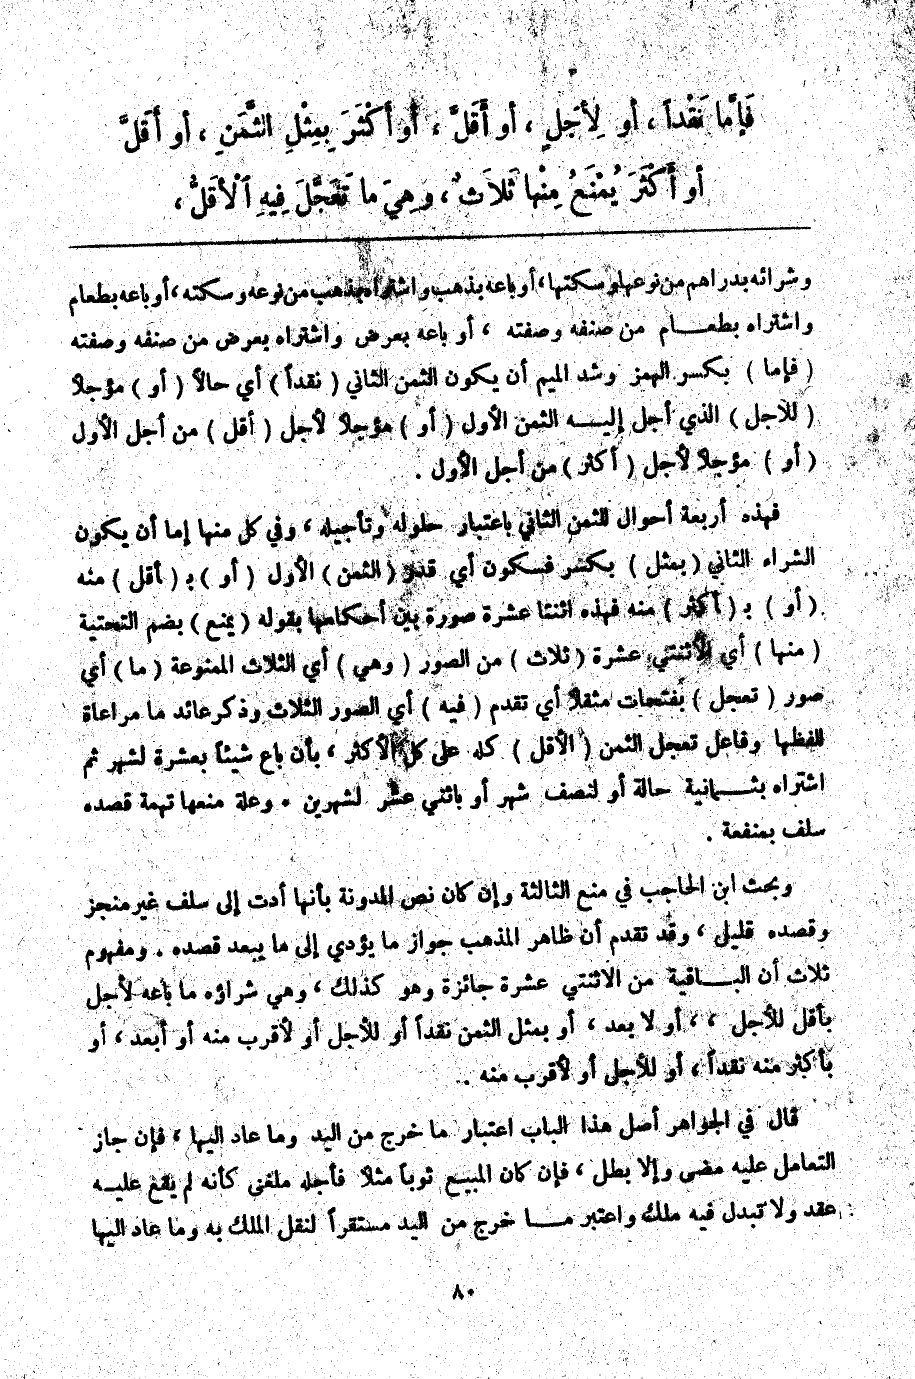 فَإِمَّا نَقْداً ، أو لِأَجَلٍ ، أو أَقَلَّ ، أو أَكْثَرَ بِمِثْلِ الثَّمَنِ ، أو أَقَلَّ
أو أَكْثَرَ يُمْنَعُ مِنْها ثَلاَثٌ ، وهِيَ ما تَعَجَّلَ فِيهِ ٱلْأَقَلُّ ،
وشرائه بدراهم من نوعها وسكتها ، أو باعه بذهب واشتراه بذهب من نوعه وسكته ، أو باعه بطعام
واشتراه بطعـــام من صنفه وصفته ، أو باعه بعرض واشتراه بعرض من صنفه وصفته
( فإما ) بكسر الهمز وشد الميم أن يكون الثمن الثاني ( نقداً ) أي حالاً ( أو ) مؤجلاً
( للأجل ) الذي أجل إليـــه الثمن الأول ( أو ) مؤجلاً لأجل ( أقل ) من أجل الأول
( أو ) مؤجلاً لأجل ( أكثر ) من أجل الأول .
فهذه أربعة أحوال للثمن الثاني باعتبار حلوله وتأجيله ، وفي كل منها إما أن يكون
الشراء الثاني ( بمثل ) بكسر فسكون أي قدر ( الثمن ) الأول ( أو ) بـ ( أقل ) منه
( أو ) بـ ( أكثر ) منه فهذه اثنتا عشرة صورة بين أحكامها بقوله ( يمنع ) بضم التحتية
( منها ) أي الاثنتي عشرة ( ثلاث ) من الصور ( وهي ) أي الثلاث الممنوعة ( ما ) أي
صور ( تعجل ) بفتحات مثقلاً أي تقدم ( فيه ) أي الصور الثلاث وذكر عائد ما مراعاة
للفظها وفاعل تعجل الثمن ( الأقل ) كله على كل الأكثر ، بأن باع شيئاً بعشرة لشهر ثم
اشتراه بثـــمانية حالة أو لنصف شهر أو باثني عشر لشهرين . وعلة منعها تهمة قصده
سلف بمنفعة .
وبحث ابن الحاجب في منع الثالثة وإن كان نص المدونة بأنها أدت إلى سلف غير منجز
وقصده قليل ، وقد تقدم أن ظاهر المذهب جواز ما يؤدي إلى ما يبعد قصده . ومفهوم
ثلاث أن البـــاقية من الاثنتي عشرة جائزة وهو كذلك ، وهي شراؤه ما باعه لأجل
بأقل للأجل ، ، أو لا بعد ، أو بمثل الثمن نقداً أو للأجل أو لأقرب منه أو أبعد ، أو
بأكثر منه نقداً ، أو للأجل أو لأقرب منه .
قال في الجواهر أصل هذا الباب اعتبار ما خرج من اليد وما عاد اليها ، فإن جاز
التعامل عليه مضى وإلا بطل ، فإن كان المبيع ثوباً مثلاً فأجله ملغى كأنه لم يقع عليـه
عقد ولا تبدل فيه ملك واعتبر مـــا خرج من اليد مستقراً لنقل الملك به وما عاد اليها
٨٠